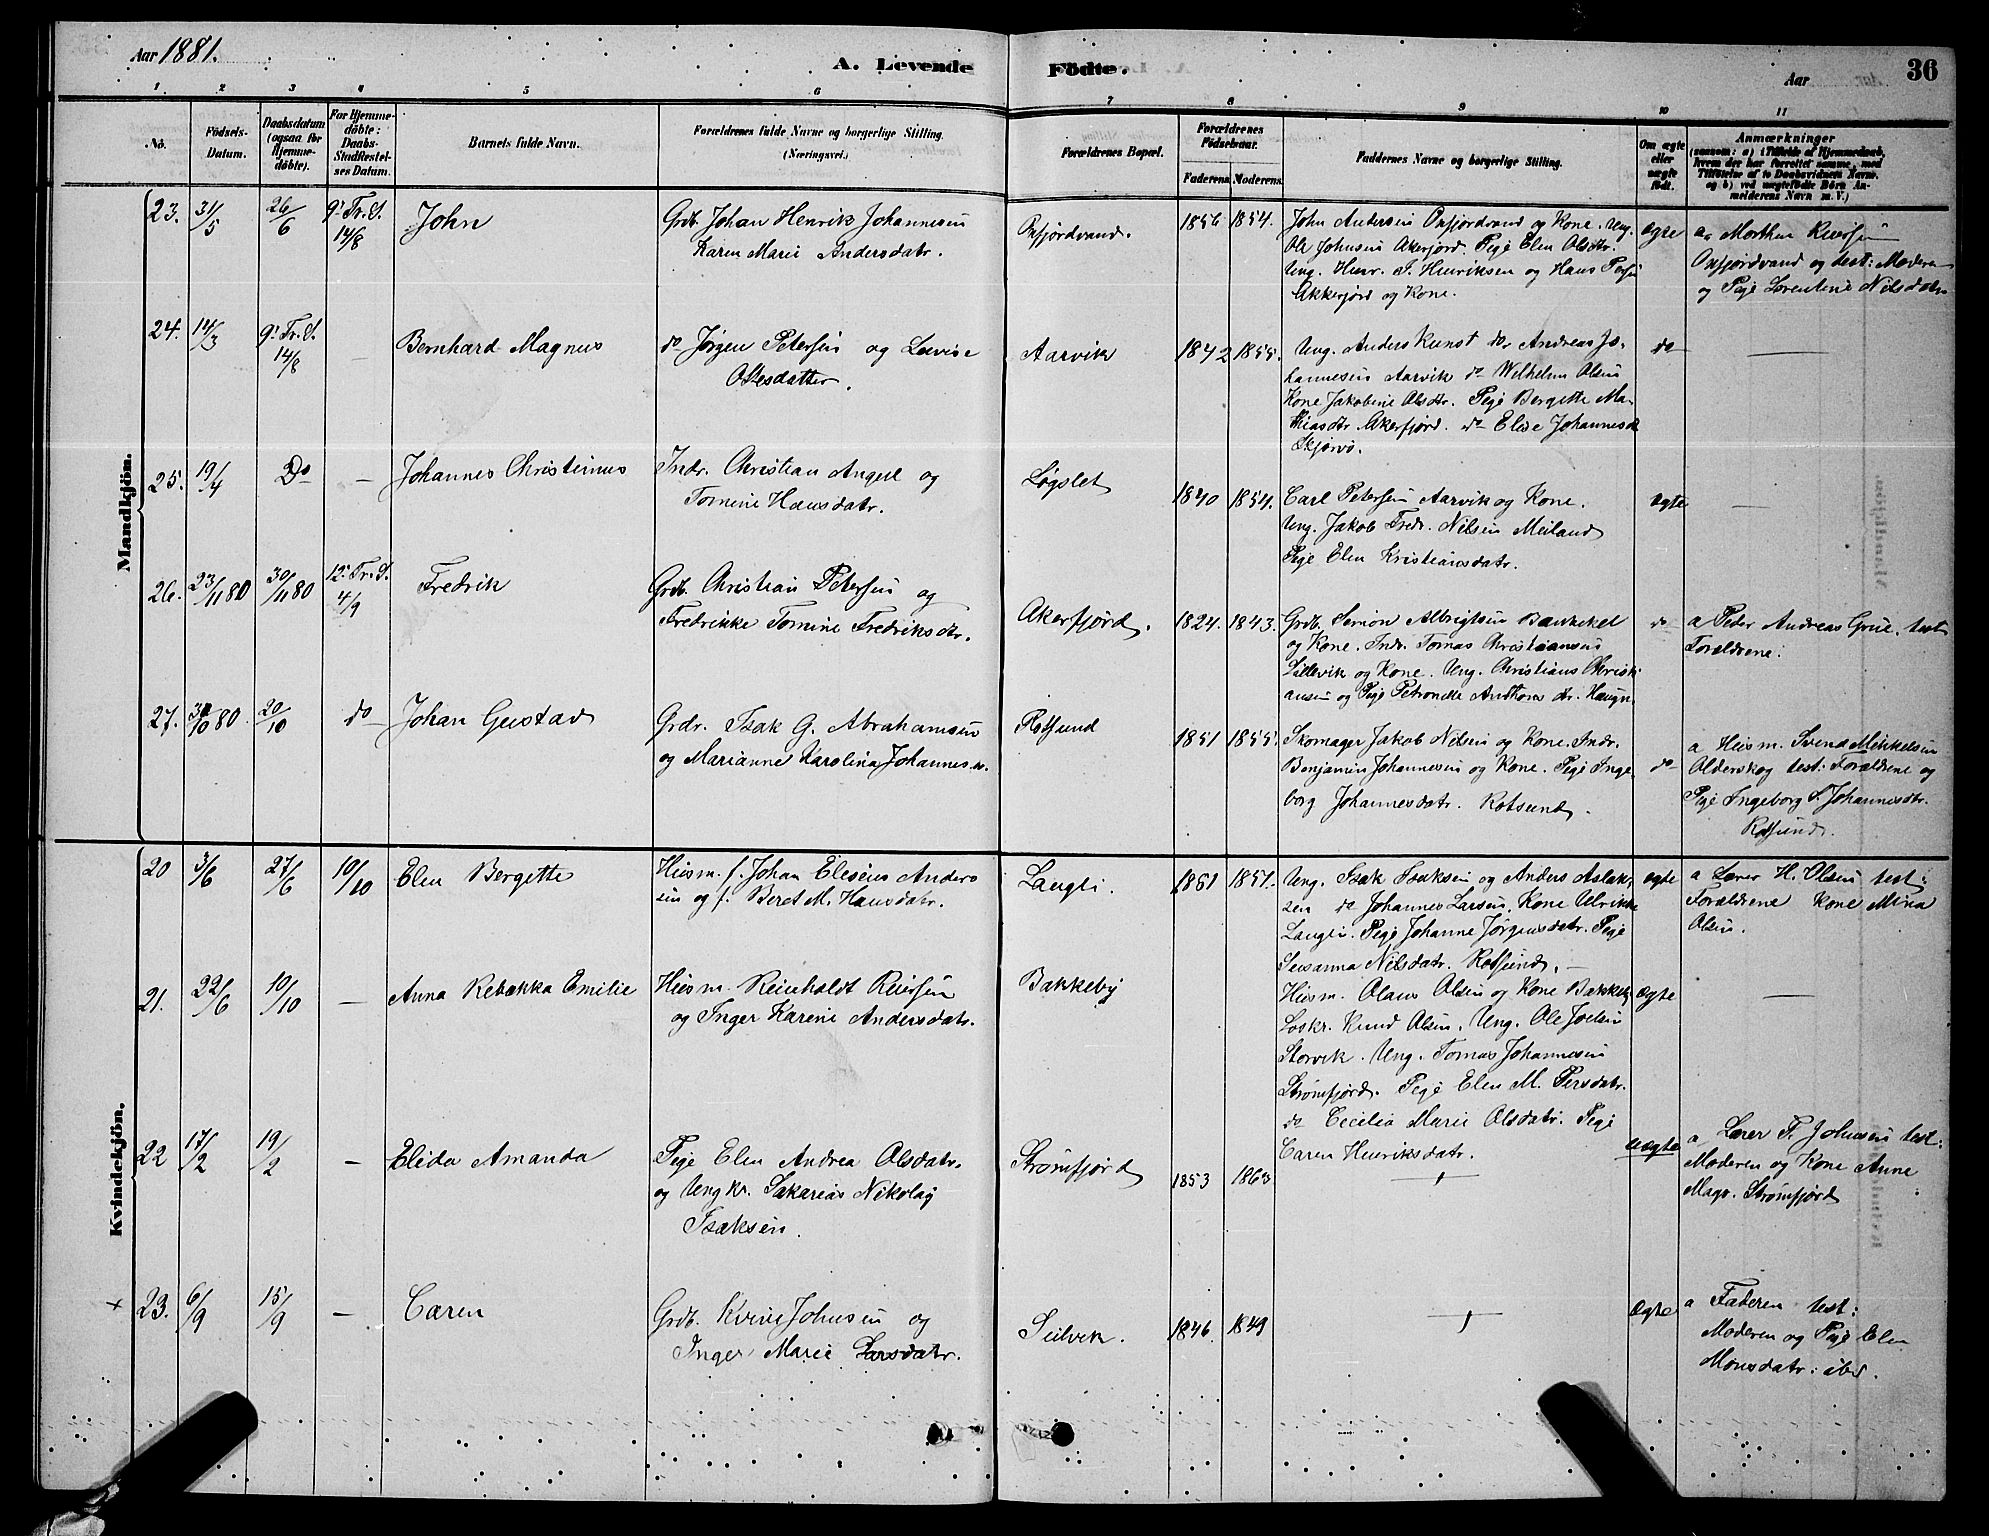 Aar 1881.
A. Levende Födte.
Aar
36
1. 2 3 4 5 6 7 8 9 10 11
No.
Födsels-
Datum.
Daabsdatum
(ogsaa for
Hjemme-
döbte).
For Hjemme-
döbte:
Daabs-
Stadfestel-
ses Datum.
Barnets fulde Navn.
Forældrenes fulde Navne og borgerlige Stilling.
(Næringsvei.)
Forældrenes Bopæl.
Forældrenes
Födselsaar.
Faderens. Moderens.
Faddernes Navne og borgerlige Stilling.
Om ægte
eller
uægte
födt.
Anmærkninger
(saasom: a) i Tilfælde af Hjemmedaab,
hvem der har forrettet samme, med
Tilföielse af to Daabsvidners Navne,
og b) ved uægtefödte Börn An-
melderens Navn m. V.)
Mandkjön.
23. 31/5 26/6 9. Tr. S.
14/8
John
Grdb. Johan Henrik Johannesen
Karen Marie Andersdatr.
Oxfjordvand.
1856 1854.
John Andersen Oxfjordvand og Kone. Ung.
Ole Johnsen Akerfjord. Pige Elen Olsdtr.
Ung. Henr. J. Henriksen og Hans
Akkerfjord og Kone.
ægte
a Morthen
Oxfjordvand og test: Moderen
og Pige Lorentine Nilsdatr.
24. 14/3 9. Tr. S.
14/8
–
Bernhard Magnus
do Jørgen Petersen og Lovise
Olesdatter.
Aarvik
1842 1855.
Ung. Anders Kunst do Andreas Jo-
hannesen Aarvik do Wilhelm Olsen
Kone Jakobine Olsdtr. Pige Bergette Ma-
thiasdtr Akerfjord. do Elise Johannesd
Skjervø.
do
–
25. 19/4 Do –
Johannes Christinus
Indr. Christian Angel og
Tomine Hansdatr.
Løgslet
1840 1854.
Carl Petersen Aarvik og Kone.
Ung. Jakob Fredr. Nilsen Meiland
Pige Elen Kristiansdatr.
ægte
–
26. 23/11 80 30/11 80 12. Tr. S.
4/9
Fredrik
Grdb. Christian Petersen og
Fredrikke Tomine Fredriksdtr.
Akerfjord.
1824. 1843.
Grdb. Simon Albrigtsen
og Kone. Indr. Tomas Christiansen
Lillevik og Kone. Ung. Christians Christi-
ansen og Pige Petronelle dr. Haugn.
do
a Peder Andreas test
Forældrene.
27. 80. 20/10 do
Johan Gustav
Grdr. Isak G. Abrahamsen
og Marianne Karolina Johannes
Rotsund
1851 1855.
Skomager Jakob Nilsen og Kone. Indr.
Benjamin Johannesen og Kone. Pige Inge-
borg Johannesdatr. Rotsund.
do
a Husm. Svend Mikkelsen
Olderskog test: Forældrene og
Pige Ingeborg S. Johannesdtr.
Rotsund.
Kvindekjön.
20 3/6 27/6 10/10
Elen Bergette
Husm. f. Johan Eliseus Anders
sen og f. Beret M. Hansdatr.
Langli.
1851 1857.
Ung. Isak Isaksen og Anders Aslak-
sen do Johannes Larsen, Kone Ulrikke
Langli. Pige Johanne Jørgensdatr. Pige
Susanna Nilsdatr. Rotsund. –
ægte
a Lærer H. Olsen test:
Forældrene Kone Mina
Olsen.
21. 22/6 10/10 –
Anna Rebækka Emilie
Husm. Reinholdt Reiersen
og Inger Karene Andersdatr.
Bakkeby
Husm. Olaus Olsen og Kone Bakkeby
Loskr. Knud Olsen. Ung. Ole Joelsen
Storvik. Ung. Tomas Johannesen
Strømfjord. Pige Elen M. Persdatr.
do Cecilia Marie Olsdatr. Pige
Caren Henriksdatr.
Ægte
–
22 17/2 19/2 –
Elida Amanda
Pige Elen Andrea Olsdatr.
og Ungkr. Sakarias Nikolay
Isaksen.
Strømfjord
1853 1863
uægte
a Lærer F. Johnsen test:
Moderen og Kone Anne
Magr. Strømfjord
+ 23. 6/9 15/9 –
Caren
Grdb. Johnsen og
Inger Marie Larsdatr.
Seilvik.
1846. 1849
Ægte
a Faderen test:
Moderen og Pige Elen
Monsdatr: ibd.